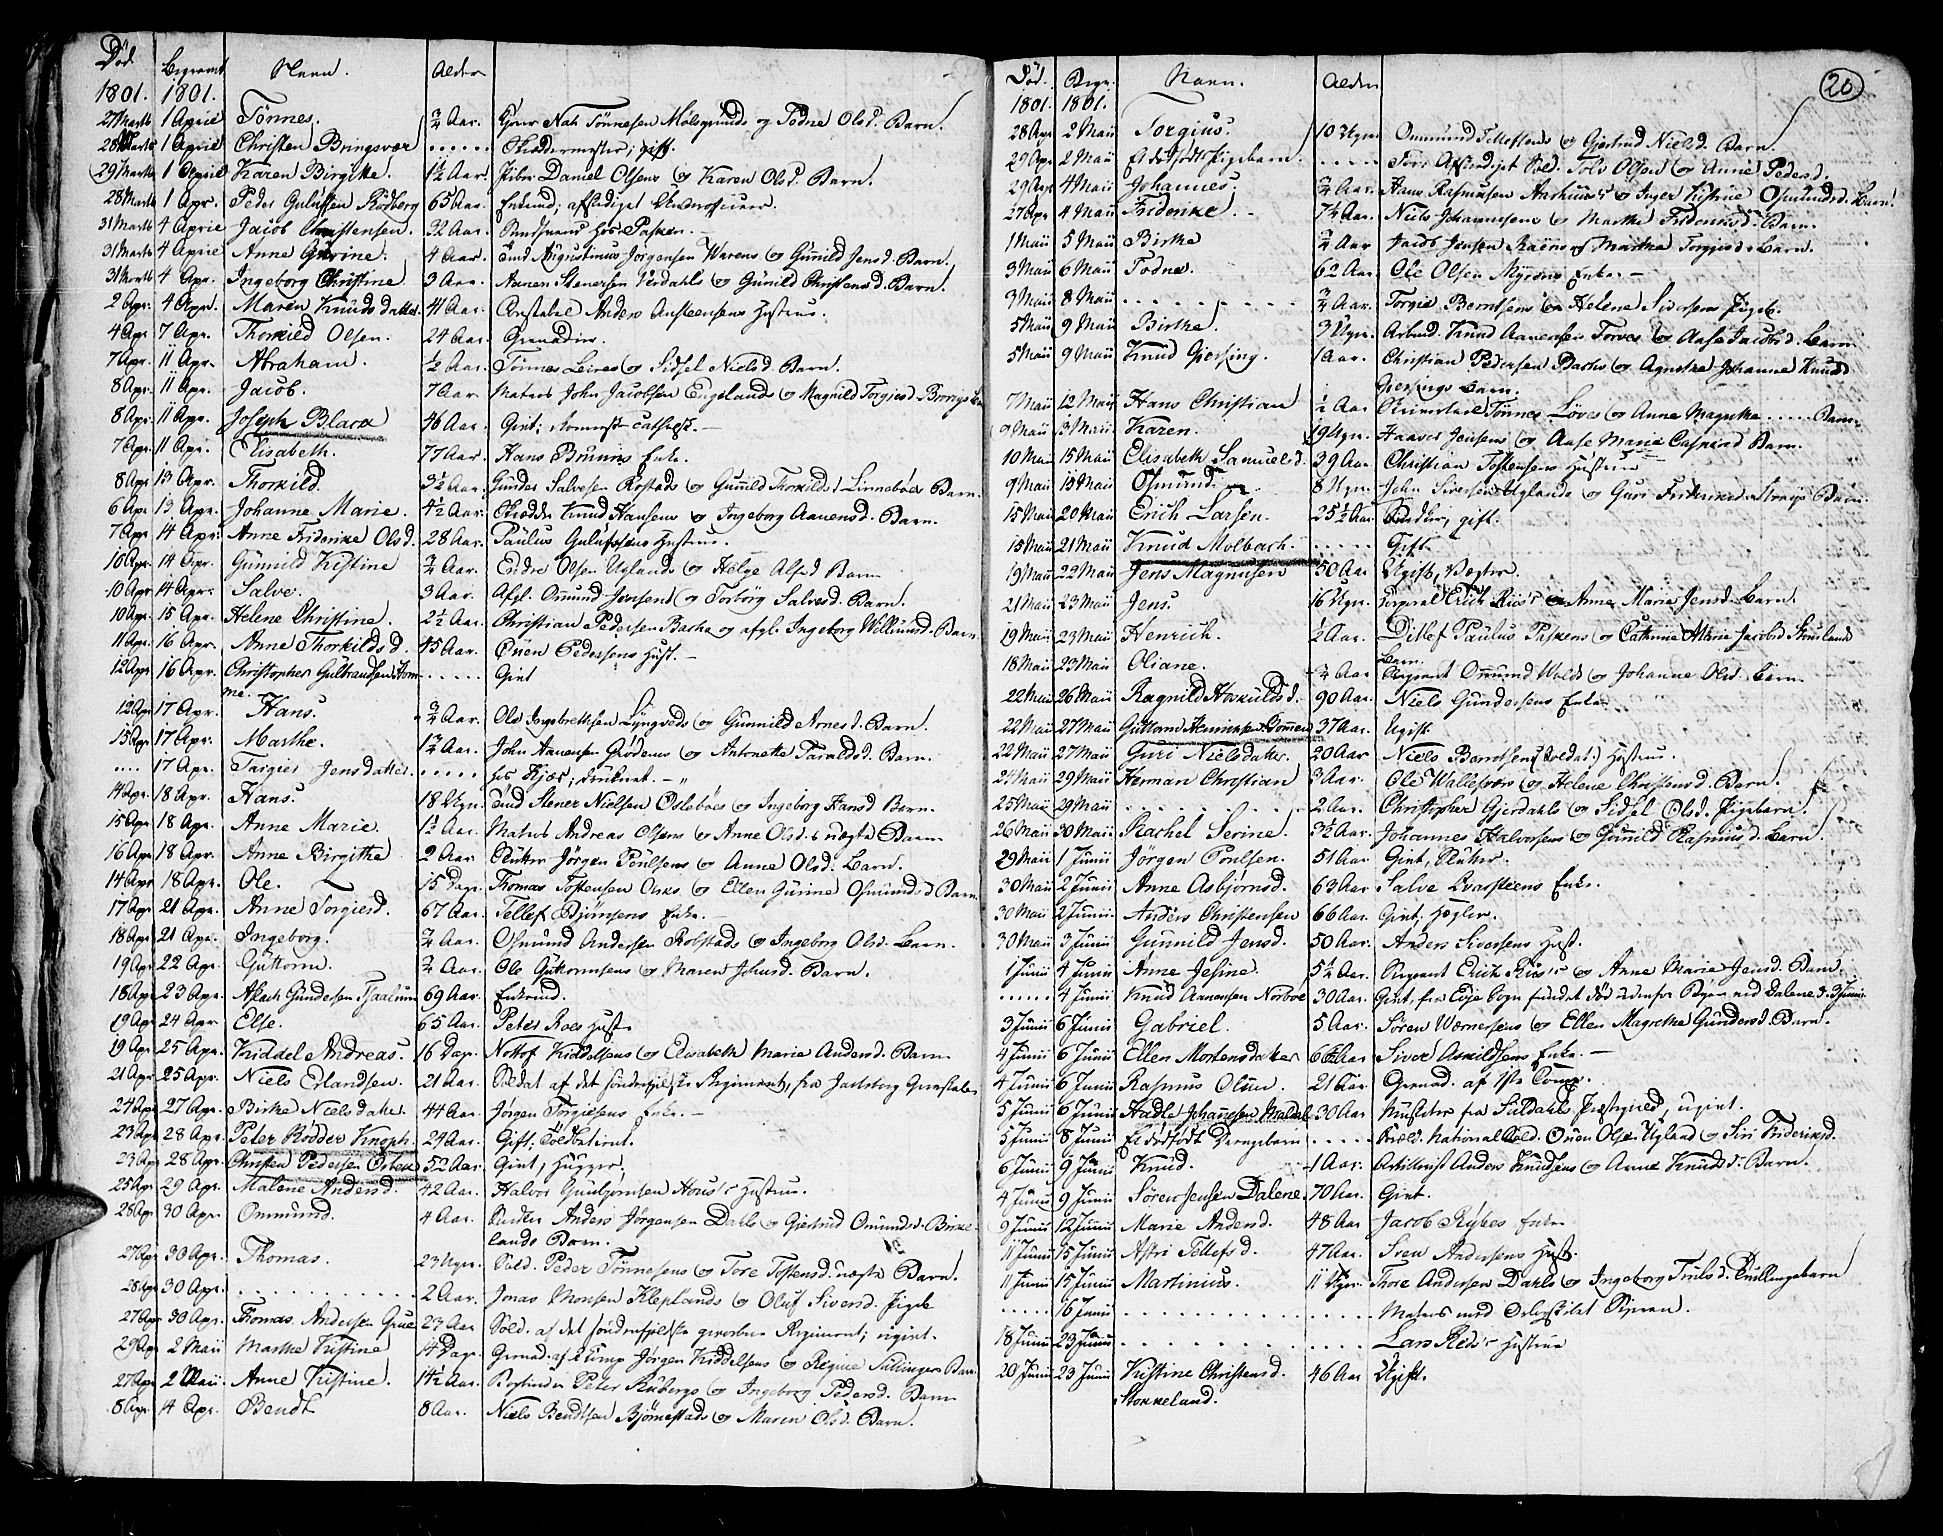 Død. Begravet Navn. Alder
1801. 1801.
27 Marts 1 April Tönnes. 3/4 Aar. Tönnesen Molsgrunds og Todne Olsd. Barn.
28 Marts 1 April Christen Bringsvær ...... Skræddermester; gift.
29 Marts 1 April Karen Birgitte. 1 1/2 Aar. Daniel Olsens og Karen Olsd. Barn.
28 Marts 1 Apr. Peder Gulufsen Rödberg 65 Aar. Enkemd; afskediget
31 Marts 4 April Jacob Christensen. 32 Aar. hos Pasken. —
31 Marts 4 April Anne Gurine. 4 Aar. Augustinus Jörgensen Warens og Gunild Jensd. Barn.
31 Marts 4 Apr. Ingeborg Christine. 3 Aar. Aanen Stenersen Verdahls og Gunild Christensd. Barn.
2 Apr. 4 Apr. Maren Knudsdatter. 41 Aar. Constabel Anders Austeensens Hustrue.
4 Apr. 7 Apr. Thorkild Olsen. 24 Aar. Grenadier.
7 Apr. 11 Apr. Abraham. 1/2 Aar. Tönnes Leires og Sidsel Nielsd. Barn.
8 Apr. 11 Apr. Jacob. 7 Aar. Matros John Jacobsen Engelands og Magnild Torgiesd.
8 Apr. 11 Apr. Joseph Blara 46 Aar. Givt; —
7 Apr. 11 Apr. Elisabeth. 77 Aar. Hans Bruuns Enke.
8 Apr. 13 Apr. Thorkild. 3 1/2 Aar. Gunder Salvesen Rostads og Gunild Thorkildsd. Linneböes Barn.
6 Apr. 13 Apr. Johanne Marie. 4 1/2 Aar. Skrædder Knud Hansens og Ingeborg Aanensd. Barn.
7 Apr. 14 Apr. Anne Friderike Olsd. 28 Aar. Paulus Gulufsens Hustrue.
10 Apr. 14 Apr. Gunnild Kistine 3/4 Aar. Endre Olsen Uglands og Helge Alfsd. Barn
10 Apr. 14 Apr. Salve. 3 Aar. Afgl. Ommund Jensens og Torborg Salvesd. Barn.
10 Apr. 15 Apr. Helene Christine. 2 1/2 Aar. Christian Pedersen Bachs og afgl. Ingeborg Willumsd. Barn
11 Apr. 16 Apr. Anne Thorkildsd. 45 Aar. Ouen Pedersens Hust. —
12 Apr. 16 Apr. Christopher Gulbrandsen Hom ..... Givt
me.
12 Apr 17 Apr. Hans. 3/4 Aar. Ole Ingebrethsen Lyngveds og Gunnild Arnesd. Barn.
15 Apr 17 Apr. Marthe. 1 3/4 Aar. John Aanensen Grödems og Antonette Taraldsd. Barn.
.... 17 Apr. Targier Jensdatter. ..... hos Kjær; —
14 Apr. 18 Apr. Hans. 18 Ugr. Stener Nielsen Osleböes og Ingeborg Hansd. Barn.
15 Apr. 18 Apr. Anne Marie 1 1/2 Aar. Matros Andreas Olsens og Anne Olsd.s uægte Barn
16 Apr 18 Apr. Anne Birgithe 2 Aar. Slutter Jörgen Poulsens og Anne Olsd. Barn.
14 Apr 18 Apr. Ole. 15 Dage. Thomas Tostensen Osnes og Ellen Gurine Osmundsd. Barn
17 Apr. 21 Apr. Anne Torgiesd. 67 Aar. Tellef Björnsens Enke. —
18 Apr 21 Apr. Ingeborg. 3/4 Aar. Osmund Andersen Rolstads og Ingeborg Olsd. Barn.
19 Apr. 22 Apr. Guttorm. 3/4 Aar. Ole Guttormsens og Maren Johnsd. Barn.
18 Apr 23 Apr. Aslach Gundersen Tjaalum 69 Aar. Enkemd.
19 Apr 24 Apr. Else. 65 Aar. Peter Roes Hust.
19 Apr. 25 Apr. Kiddel Andreas. 16 Dage. Nottof Kiddelsens og Elisabeth Marie Andersd. Barn
21 Apr 25 Apr. Niels Erlandsen. 21 Aar. Soldat af det söndenfjelske Regiment, fra Jarlsberg Grevskab.
24 Apr 27 Apr. Birthe Nielsdatter. 44 Aar. Jörgen Torgiesens Enke. —
23 Apr 28 Apr. Peter Rödder Knoph. 24 Aar. Gift,
23 Apr 28 Apr. Christen Pedersen Örbek 52 Aar. Givt,
25 Apr 29 Apr. Malene Andersd. 42 Aar. Halvor Gunbjörnsen Hous's Hustrue.
25 Apr 30 Apr. Ommund. 4 Aar. Anders Jörgensen Dahls og Gjertrud Omundsd. Birke-
lands Barn.
27 Apr. 30 Apr. Thomas. 23 Uger. Sold. Peder Tönnesens og Tore Tostensd. uægte Barn.
28 Apr 30 Apr. .......... 2 Aar. Jonas Monsen Kleplands og Oluf Siversd. Pigeb
27 Apr 30 Apr. Thomas Andersen Grue 23 Aar Sold. af det söndenfjeldske gevorbne Regiment; ugivt.
29 Apr 2 Maii Marthe Kistine 14 Dage. Grenad. af Comp Jörgen Kiddelsens og Regine Tullinger Barn
27 Apr 2 Maii Anne Kistine. 1 1/2 Aar. Peter Rübergs og Ingeborg Pedersd. Barn
8 Apr. 14 Apr. Bendt 8 Aar. Niels Bendtsen Björnestads og Maren Olsd. Barn.
20
Död. Begr. Navn. Alder
1801. 1801.
28 Apr 2 Maii Torgius. 10 Uger. Ommund Tellefsens og Gjertrud Nielsd. Barn.
29 Apr 2 Maii Et dödfödt Pigebarn. ..... Afskediget Sold. Tolv Olsen og Anne Pedersd.
29 Apr 4 Maii Johannes. 3/4 Aar. Hans Rasmussen Aarhuus's og Inger Kistine Osmundsd. Barn.
27 Apr 4 Maii Friderike. 7 1/2 Aar. Niels Johannesens og Marthe Fridriksd. Barn.
1 Maii 5 Maii Birthe 3/4 Aar Jacob Jensen og Marthe Torgiesd. Barn.
3 Maii 6 Maii Todne. 62 Aar. Ole Olsen Myrens Enke. —
3 Maii 8 Maii ........ 3/4 Aar. Torgie Berntsens og Helene Siversens Pigeb.
5 Maii 9 Maii Birthe. 3 Uger. Arbmd. Knud Aanensen Torves og Aase Jacobsd. Barn
5 Maii 9 Maii Knud Giersing. 1 Aar. Christian Pedersen Bachs og Agnethe Johanne Knud
Giersings Barn.
7 Maii 12 Maii Hans Christian 1/2 Aar Tönnes Löves og Anne Magrethe ..... Barn.
9 Maii 13 Maii Karen. 19 Uger. Haaver Jensens og Aase Marie Caspersd. Barn.
10 Maii 15 Maii Elisabeth Samuelsd. 39 Aar Christian Tostensens Hustrue
9 Maii 13 Maii Osmund. 8 Uger. John Siversen Uglands og Guri Frideriksd. Barn.
15 Maii 20 Maii Erich Larsen. 25 1/2 Aar gift.
15 Maii 21 Maii Knud Molbach. ..... Gift.
19 Maii 22 Maii Jens Magnusen 50 Aar. Ugift, Vægter.
21 Maii 23 Maii Jens. 16 Uger. Corporal Erich Riis's og Anne Marie Jensd. Barn.
19 Maii 23 Maii Henrich. 1/2 Aar. Ditlef Paulus Piskens og Catrine Marie Jacobsd. Skulands
Barn.
18 Maii 23 Maii Oliane. 1/4 Aar Sergeant Ommund Wolds og Johanne Olsd. Barn
22 Maii 26 Maii Ragnild Haskuldsd. 90 Aar. Niels Gundersens Enke
22 Maii 27 Maii Guttorm Henrichsen Gomsen 37 Aar. Ugift.
22 Maii 27 Maii Guri Nielsdatter. 20 Aar Niels Berntsens (Soldat) Hustrue.
24 Maii 29 Maii Herman Christian 3 Aar. Ole Wallesværs og Helene Christensd. Barn.
25 Maii 29 Maii ........ 2 Aar. Christopher Gjerdahls og Sidsel Olsd. Pigebarn.
26 Maii 30 Maii Rachel Serine. 3 1/2 Aar. Johannes Halvorsens og Gunild Rasmusd. Barn.
29 Maii 1 Junii Jörgen Poulsen. 51 Aar. Givt, Slutter.
30 Maii 2 Junii Anne Asbjörnsd. 63 Aar Salve Evarsteens Enke.
30 Maii 2 Junii Anders Christensen 66 Aar. Givt;
30 Maii 3 Junii Gunnild Jensd. 50 Aar. Anders Siversens Hust.
1 Junii 4 Junii Anne Jesine. 5 1/2 Aar. Sergeant Erich Riis's og Anne Marie Jensd. Barn.
...... 4 Junii Knud Aanensen Norboe 30 Aar. Givt, fra Evje Sogn fundet död udenfor Byen ved Dalene d. 3 Junii.
3 Junii 6 Junii Gabriel. 5 Aar. Sören Wernersens og Ellen Magrethe Gundersd. Barn.
4 Junii 6 Junii Ellen Mortensdatter 66 Aar. Siver Askildsens Enke. —
4 Junii 6 Junii Rasmus Olsen. 21 Aar. Grenad. af 1ste Comp.
5 Junii 6 Junii Hadle Johannesen Maldal 30 Aar. Musketeer fra Suldahls Præstegield, ugivt.
5 Junii 8 Junii Et dödfödt Drengebarn ..... National Sold. Ouen Olsen Ugland og Siri Frideriksd.
6 Junii 9 Junii Knud. 1 Aar. Artillerist Anders Knudsens og Anne Knudsd. Barn.
4 Junii 9 Junii Sören Jensen Dalene 70 Aar. Givt.
9 Junii 12 Junii Marie Andersd. 48 Aar Jacob Enke
11 Junii 15 Junii Astri Tellefsd. 47 Aar. Sven Andersens Hust.
11 Junii 15 Junii Martinius. 11 Uger. Thore Andersen Dahls og Ingeborg Trulsd. Tvillingebarn
..... 16 Junii ............ Matros med Orlogskibet
18 Junii 23 Junii ............ Lars Hustrue
20 Junii 23 Junii Kistine Christensd. 46 Aar Ugift.
Stokkeland.